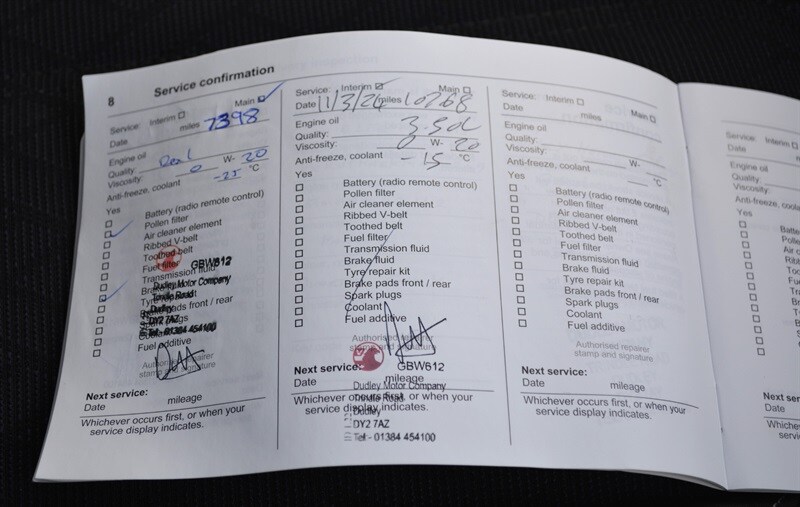 8 Service confirmation
Service: Interim ☐ Main ☑
Date miles 7398
Engine oil
Quality:
Viscosity: 0 W- 20
Anti-freeze, coolant -25 °C
Yes
☐ Battery (radio remote control)
Pollen filter
Air cleaner element
Ribbed V-belt
Toothed belt
Fuel filter
GBW612
Transmission fluid
Dudley Motor Company
Tyre
pads front / rear
plugs
Dudley
DY2 7AZ
Tel: 01384 454100
Fuel additive
Authorised repairer
stamp and signature
Next service:
Date mileage
Whichever occurs first, or when your
service display indicates.
Service: Interim ☑ Main ☐
Date 11/3/24 miles 10268
Engine oil
Quality:
Viscosity: 0 W- 20
Anti-freeze, coolant -15 °C
Yes
☐ Battery (radio remote control)
☐ Pollen filter
☐ Air cleaner element
☐ Ribbed V-belt
☐ Toothed belt
☐ Fuel filter
☐ Transmission fluid
☐ Brake fluid
☐ Tyre repair kit
☐ Brake pads front / rear
☐ Spark plugs
☐ Coolant
☐ Fuel additive
Authorised repairer
stamp and signature
GBW612
Next service:
Date mileage
Dudley Motor Company
Whichever occurs first, or when your
service display indicates.
Dudley
DY2 7AZ
Tel - 01384 454100
Service: Interim ☐ Main ☐
Date miles
Engine oil
Quality:
Viscosity: W-
Anti-freeze, coolant °C
Yes
☐ Battery (radio remote control)
☐ Pollen filter
☐ Air cleaner element
☐ Ribbed V-belt
☐ Toothed belt
☐ Fuel filter
☐ Transmission fluid
☐ Brake fluid
☐ Tyre repair kit
☐ Brake pads front / rear
☐ Spark plugs
☐ Coolant
☐ Fuel additive
Authorised repairer
stamp and signature
Next service:
Date mileage
Whichever occurs first, or when your
service display indicates.
Service: Interim ☐
Date
Engine oil
Quality:
Viscosity:
Anti-freeze, coolant
Yes
Date